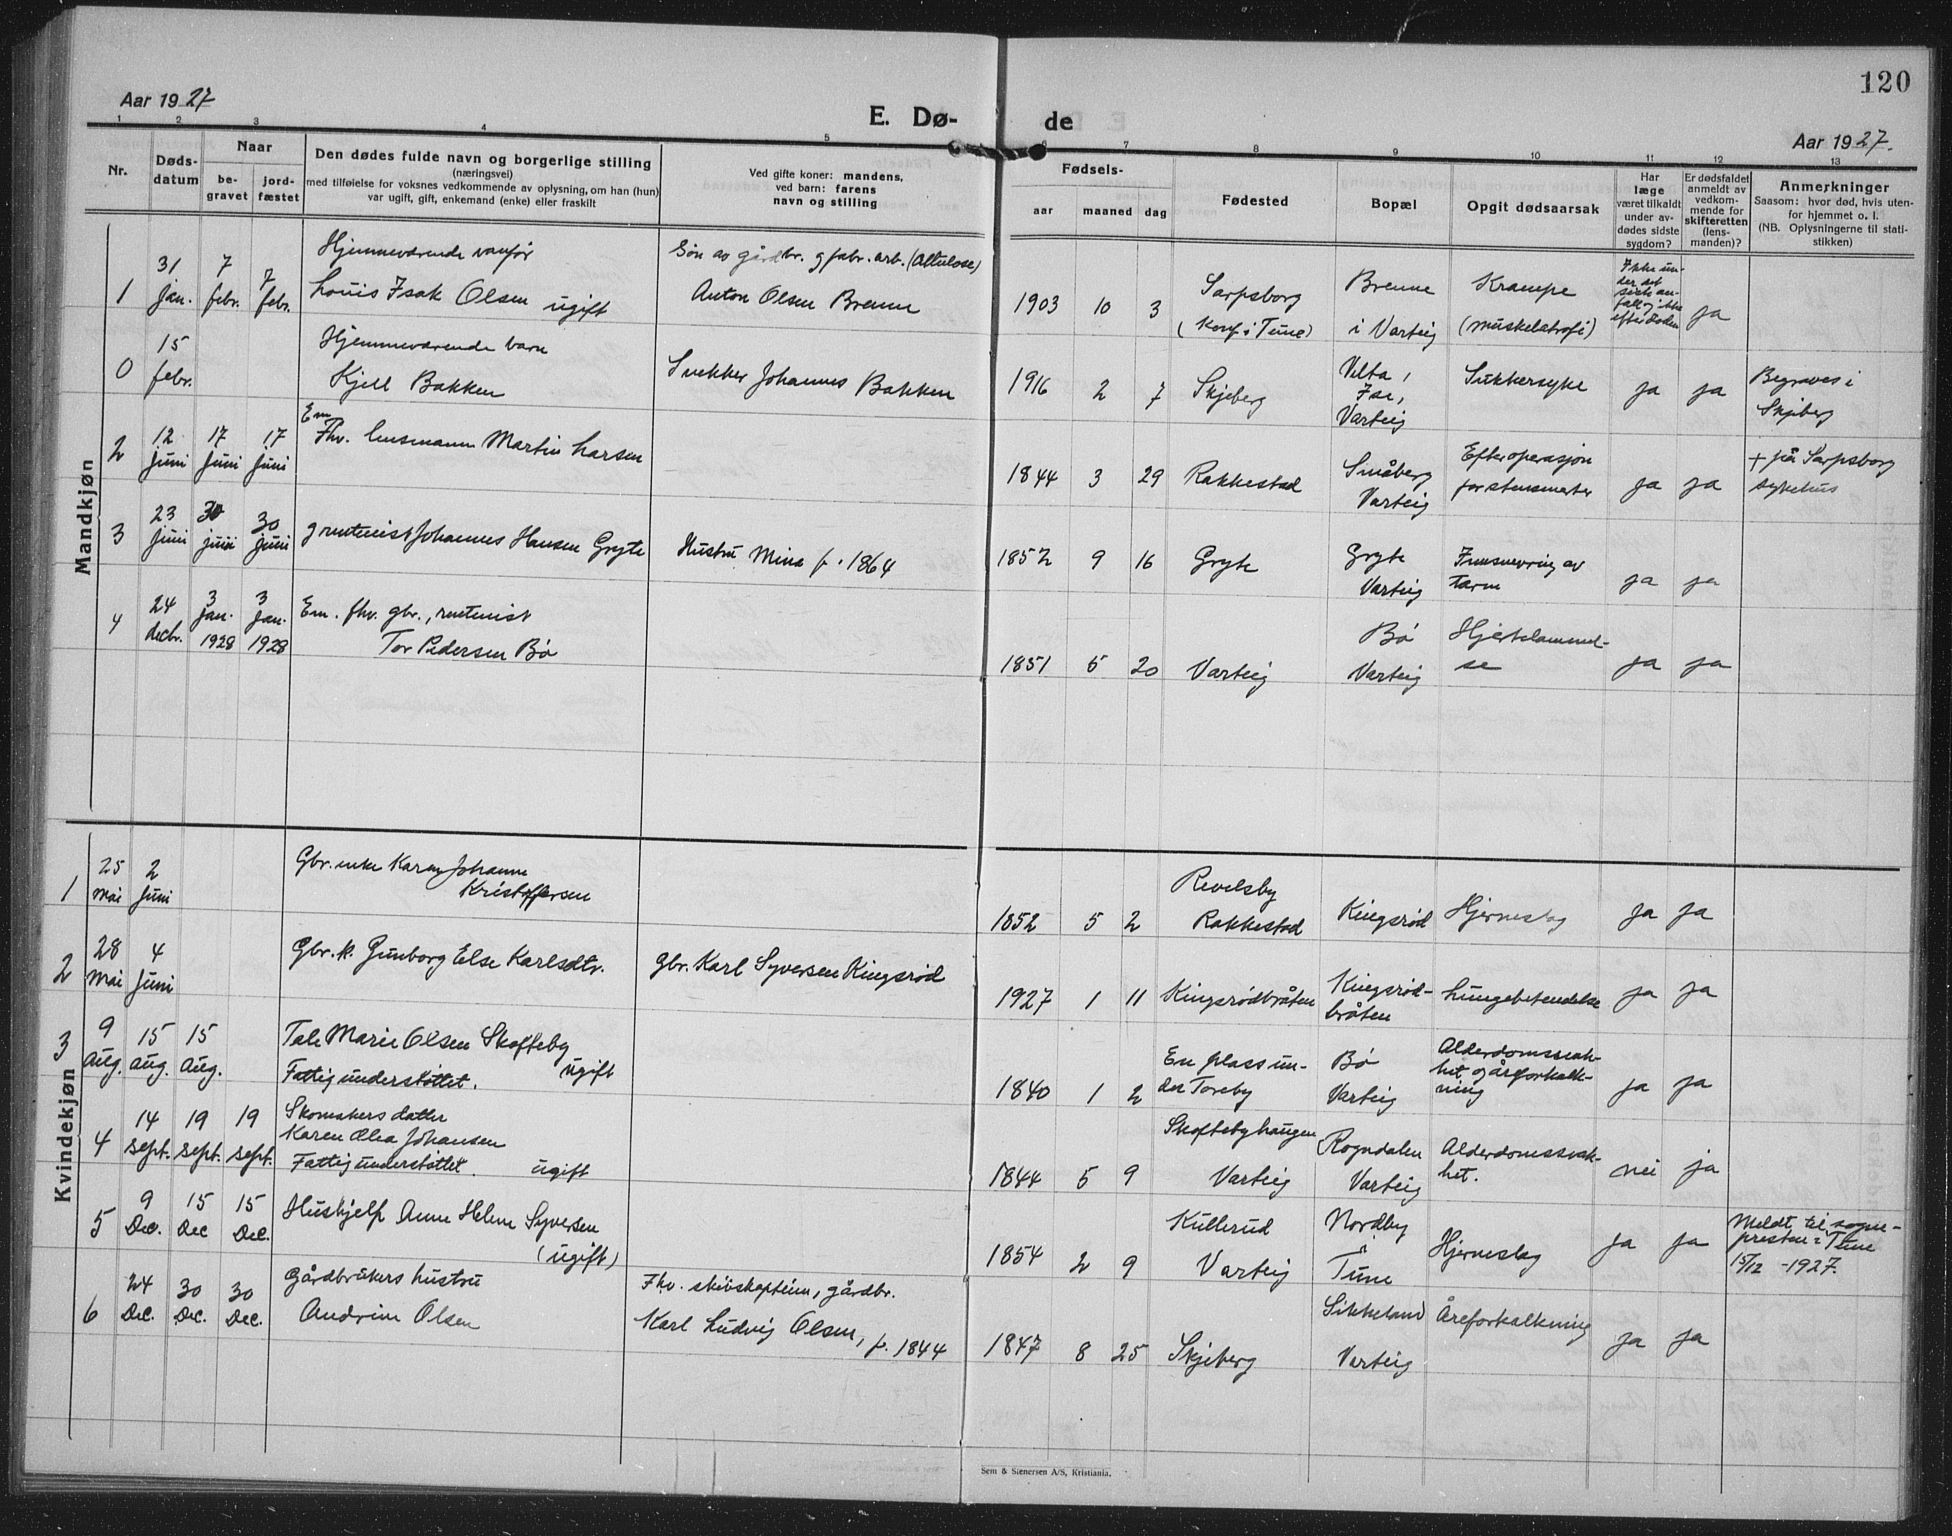 120
Aar 1927
E. Dø-
de
Aar 1927.
1 2 3 4 5 6 7 8 9 10 11 12 13
Nr.
Døds-
datum
Naar
be-
gravet
jord-
fæstet
Den dødes fulde navn og borgerlige stilling
(næringsvei)
med tilføielse for voksnes vedkommende av oplysning, om han (hun)
var ugift, gift, enkemand (enke) eller fraskilt
Ved gifte koner: mandens,
ved barn: farens
navn og stilling
Fødsels-
aar maaned dag
Fødested
Bopæl
Opgit dødsaarsak
Har
læge
været tilkaldt
under av-
dødes sidste
sygdom?
Er dødsfaldet
anmeldt av
vedkom-
mende for
skifteretten
(lens-
manden)?
Anmerkninger
Saasom: hvor død, hvis uten-
for hjemmet o. l.
(NB. Oplysningerne til stati-
stikken)
Mandkjøn
1
31 Jan.
7 febr.
7 febr.
Hjemmeværende vanfør
Louis Isak Olsen ugift
Søn av gårdbr. og fabr. arb.
Anton Olsen Brenne
1903 10 3
Sarpsborg
(Konf. i Tune)
Brenne
i Varteig
Krampe
(muskelatrofi)
Ikke un-
der det
siste an-
fall og ikke
efter døden
ja
0
15 febr.
Hjemmeværende barn
Kjell Bakken
Snekker Johannes Bakken
1916 2 7
Skjeberg
Varteig
Sukkersyke
ja ja
Begraves i
Skjeberg
2
12 Juni
17 Juni
17 Juni
Em.
Fhv. lensmann Martin Larsen
1844 3 29
Rakkestad
Småberg
Varteig
Efter operasjon
for stensmerter
ja ja
+ på Sarpsborg
sykehus
3
23 Juni
30 juni
30 juni
rentenist Johannes Hansen Gryte
Hustru Mina f. 1864
1852 9 16
Gryte
Gryte
Varteig
Innsnevring av
tarm
ja ja
4
24 decbr.
3 Jan. 1928
3 Jan. 1928
Em. fhv. gbr., rentenist
Tor Pedersen Bø
1851 5 20
Varteig
Bø
Varteig
Hjertelammel-
se
ja ja
Kvindekjøn
1
25 Mai
2 Juni
Gbr. enke Karen Johanne
Kristoffersen
1852 5 2
Revelsby
Rakkestad
Kingsrød
Hjerneslag
ja ja
2
28 Mai
4 Juni
Gbr. k. Gunborg Else Karlsdtr.
Gbr. Karl Syversen Kingsrød
1927 1 11
Kingsrødbråten
Kingsrød-
bråten
Lungebetendelse
ja ja
3
9 Aug.
15 Aug.
15 Aug.
Tale Marie Olsen Skofteby
ugift
Fattigunderstøttet.
1840 1 2
En plass un-
der Toreby
Bø
Varteig
Alderdomssvak-
het og åreforkalk-
ning
ja ja
4
14 sept.
19 sept.
19 sept.
Skomakers datter
Karen Olea Johansen
Fattigunderstøttet. ugift
1844 5 9
Skoftebyhaugen
Varteig
Rogndalen
Varteig
Alderdomssvak-
het.
nei ja
5
9 Dec.
15 Dec
15 Dec.
Hushjelp Anne Helene Syversen
(ugift)
1854 2 9
Kullerud
Varteig
Nordby
i
Tune
Hjerneslag
ja ja
Meldt til sogne-
presten i Tune
15/12 - 1927.
6
24 Dec.
30 Dec.
30 Dec.
Gårdbrukers hustru
Andrine Olsen
Fhv. skibskaptein, gårdbr.
Karl Ludvig Olsen, f. 1844
1847 8 25
Skjeberg
Sikkeland
Varteig
Åreforkalkning
ja ja
Sem & Stenersen A/S, Kristiania.